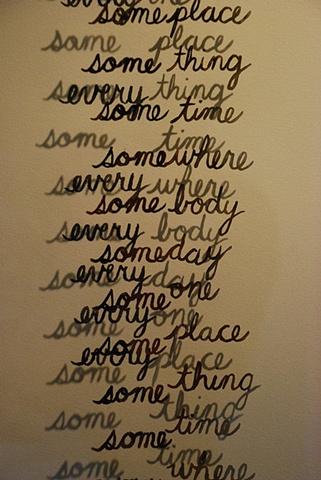 every one
some place
some place
some thing
every thing
some time
some time
somewhere
every where
some body
every body
someday
every day
some one
every one
some place
every place
some thing
some thing
some time
some time
where